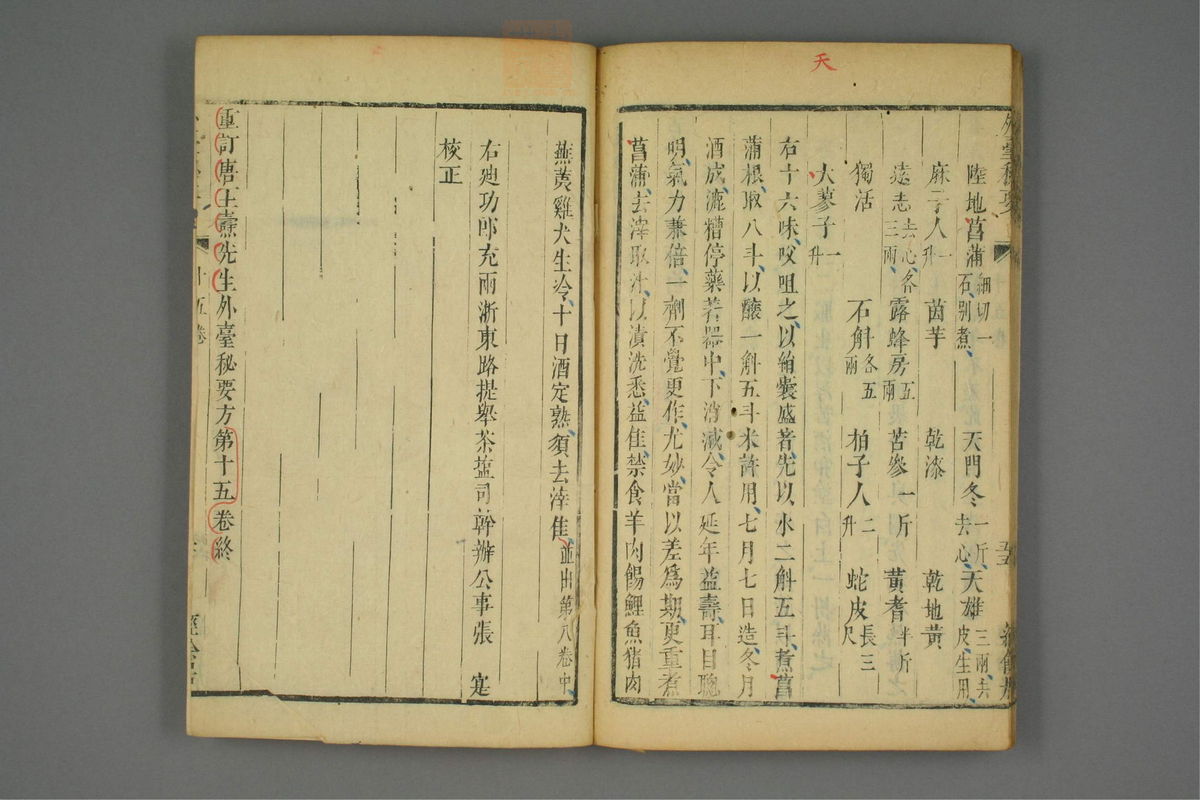 天
外臺秘要
陸地菖蒲細切一石別煮 天門冬一斤去心 天雄三兩去皮生用
麻子人一升 茵芋 乾漆 乾地黃
遠志去心各三兩 露蜂房五兩 苦參一斤 黃耆半斤
獨活 石斛各五兩 柏子人二升 蛇皮長三尺
大蓼子一升
右十六味㕮咀之以絹囊盛著先以水二斛五斗煮菖
蒲根取八斗以釀一斛五斗米許用七月七日造冬月
酒成漉糟停藥著器中下消減令人延年益壽耳目聰
明氣力兼倍一劑不覺更作尤妙當以差為期更重煮
菖蒲去滓取汁以漬洗悉益佳禁食羊肉餳鯉魚猪肉
蕪荑雞犬生冷十日酒定熟須去滓佳並出第八卷中
右廸功郎充兩浙東路提舉茶鹽司幹辦公事張 寔
校正
重訂唐王燾先生外臺秘要方第十五卷終
十五卷
經餘居